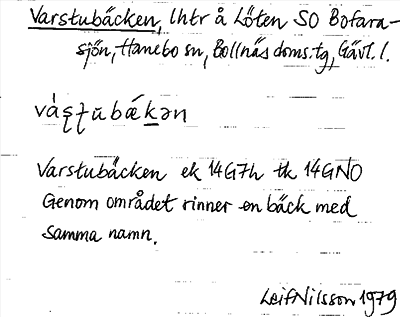 Varstubäcken, lhtr å Löten SO Bofara-
sjön, Hanebo sn, Bollnäs doms.tg, Gävl. l.
vá̀ʂʈu̅bǽkən
Varstubäcken ek 14G7h tk 14GNO
Genom området rinner en bäck med
samma namn.
Leif Nilsson 1979